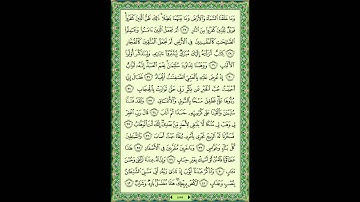 وَمَا خَلَقْنَا السَّمَاءَ وَالْأَرْضَ وَمَا بَيْنَهُمَا بَاطِلًا ذَٰلِكَ ظَنُّ الَّذِينَ كَفَرُوا
فَوَيْلٌ لِّلَّذِينَ كَفَرُوا مِنَ النَّارِ ٢٧ أَمْ نَجْعَلُ الَّذِينَ ءَامَنُوا وَعَمِلُوا
الصَّٰلِحَٰتِ كَالْمُفْسِدِينَ فِي الْأَرْضِ أَمْ نَجْعَلُ الْمُتَّقِينَ كَالْفُجَّارِ
٢٨ كِتَٰبٌ أَنزَلْنَٰهُ إِلَيْكَ مُبَٰرَكٌ لِّيَدَّبَّرُوا ءَايَٰتِهِ وَلِيَتَذَكَّرَ أُولُوا
الْأَلْبَٰبِ ٢٩ وَوَهَبْنَا لِدَاوُودَ سُلَيْمَٰنَ نِعْمَ الْعَبْدُ إِنَّهُ أَوَّابٌ
٣٠ إِذْ عُرِضَ عَلَيْهِ بِالْعَشِيِّ الصَّٰفِنَٰتُ الْجِيَادُ ٣١ فَقَالَ إِنِّي
أَحْبَبْتُ حُبَّ الْخَيْرِ عَن ذِكْرِ رَبِّي حَتَّىٰ تَوَارَتْ بِالْحِجَابِ ٣٢
رُدُّوهَا عَلَيَّ فَطَفِقَ مَسْحًا بِالسُّوقِ وَالْأَعْنَاقِ ٣٣ وَلَقَدْ فَتَنَّا
سُلَيْمَٰنَ وَأَلْقَيْنَا عَلَىٰ كُرْسِيِّهِ جَسَدًا ثُمَّ أَنَابَ ٣٤ قَالَ رَبِّ اغْفِرْ
لِي وَهَبْ لِي مُلْكًا لَّا يَنبَغِي لِأَحَدٍ مِّن بَعْدِي إِنَّكَ أَنتَ الْوَهَّابُ ٣٥
فَسَخَّرْنَا لَهُ الرِّيحَ تَجْرِي بِأَمْرِهِ رُخَاءً حَيْثُ أَصَابَ ٣٦ وَالشَّيَٰطِينَ
كُلَّ بَنَّاءٍ وَغَوَّاصٍ ٣٧ وَءَاخَرِينَ مُقَرَّنِينَ فِي الْأَصْفَادِ ٣٨ هَٰذَا
عَطَاؤُنَا فَامْنُنْ أَوْ أَمْسِكْ بِغَيْرِ حِسَابٍ ٣٩ وَإِنَّ لَهُ عِندَنَا لَزُلْفَىٰ
وَحُسْنَ مَـَٔابٍ ٤٠ وَاذْكُرْ عَبْدَنَا أَيُّوبَ إِذْ نَادَىٰ رَبَّهُ أَنِّي مَسَّنِيَ الشَّيْطَٰنُ
بِنُصْبٍ وَعَذَابٍ ٤١ ارْكُضْ بِرِجْلِكَ هَٰذَا مُغْتَسَلٌ بَارِدٌ وَشَرَابٌ ٤٢